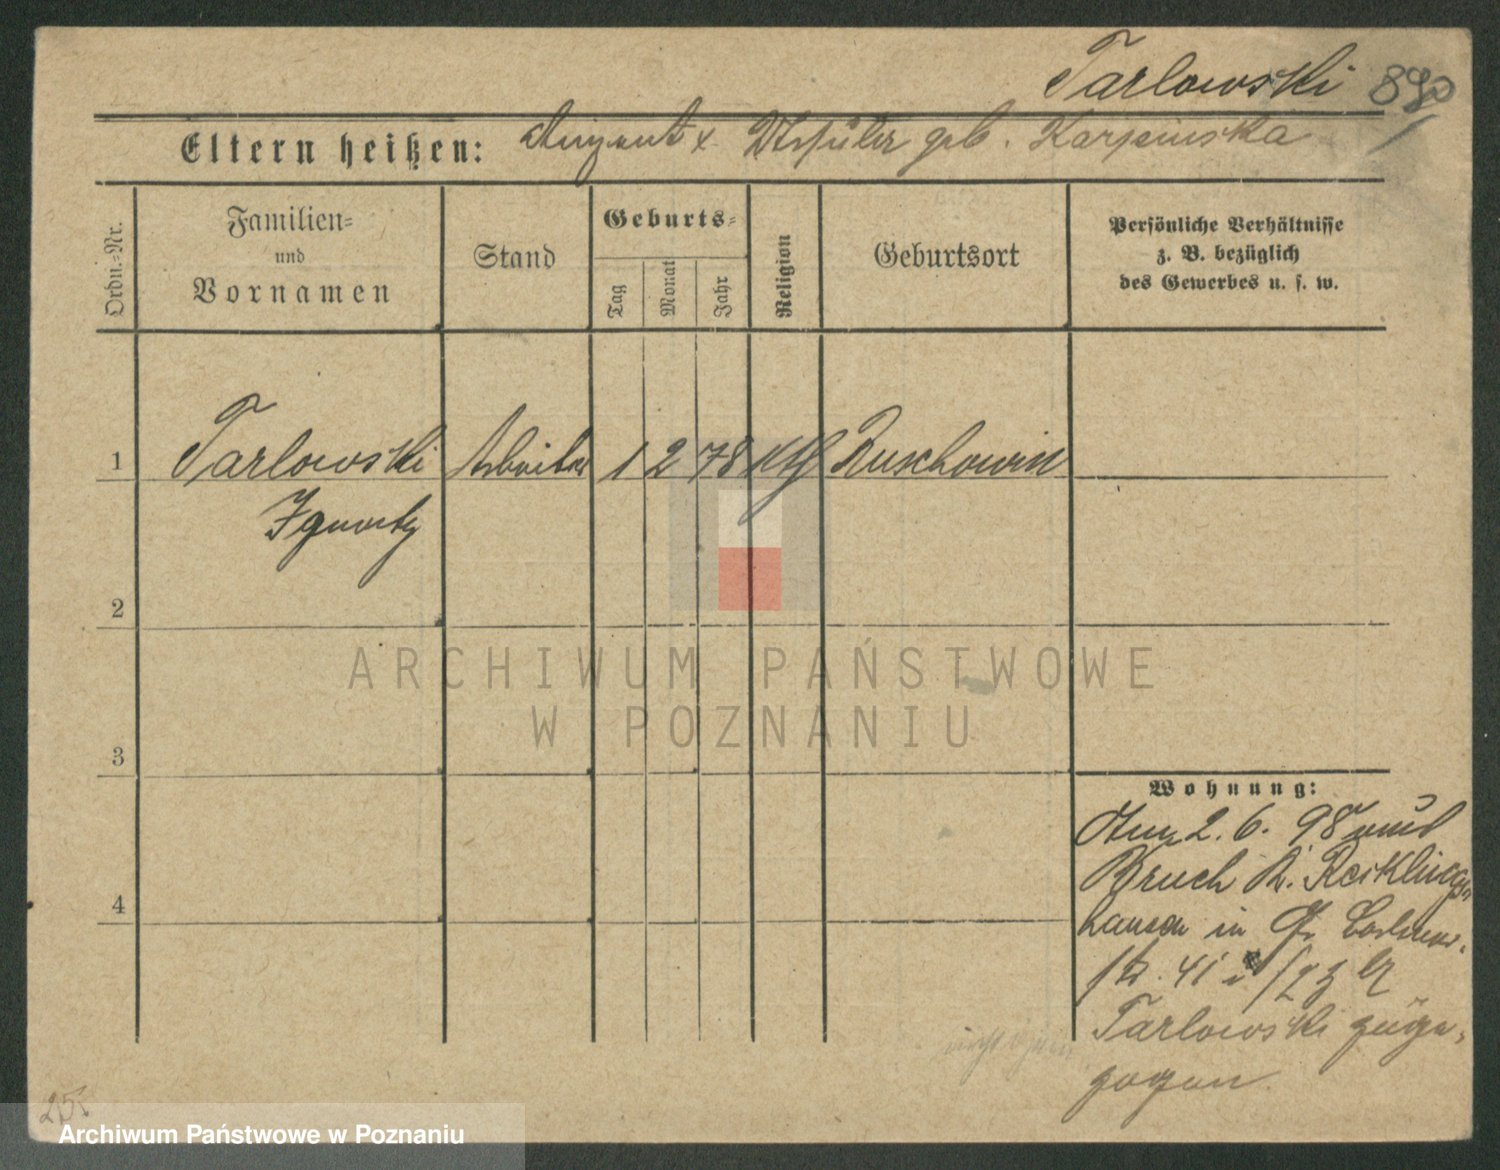 Tarlowski 890
Eltern heißen: geb. Karpinska
Ordn.-Nr.
Familien-
und
Vornamen
Stand
Geburts-
Tag
Monat
Jahr
Religion
Geburtsort
Persönliche Verhältnisse
z. B. bezüglich
des Gewerbes u. s. w.
1 Tarlowski Arbeiter 1 2 78 kth Ruschowin
Ignatz
2
ARCHIWUM PAŃSTWOWE
W POZNANIU
3
Wohnung:
Am 2. 6. 98 aus
Bruch Kr. Recklings
hausen in Gr.
str. 41
Tarlowski zuge-
zogen.
4
25
Archiwum Państwowe w Poznaniu